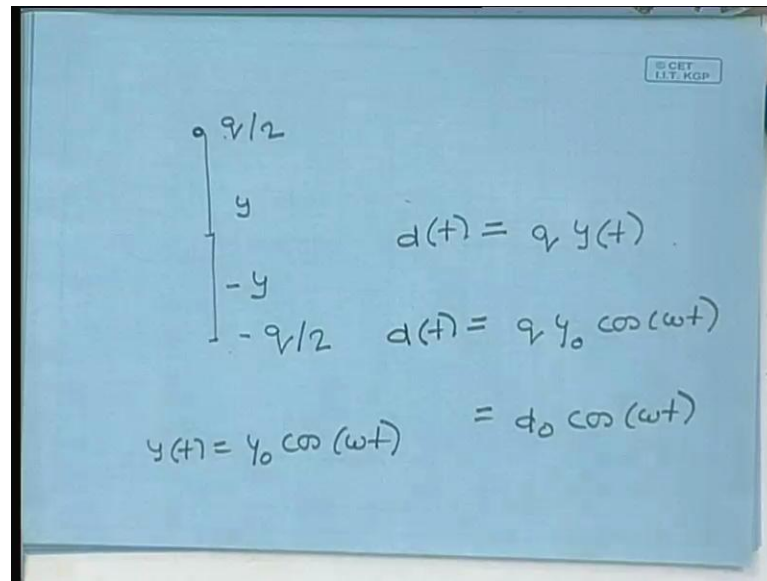 © CET
I.I.T. KGP
q/2
y
d(t) = q y(t)
-y
- q/2
d(t) = q y₀ cos(ωt)
= d₀ cos(ωt)
y(t) = y₀ cos(ωt)